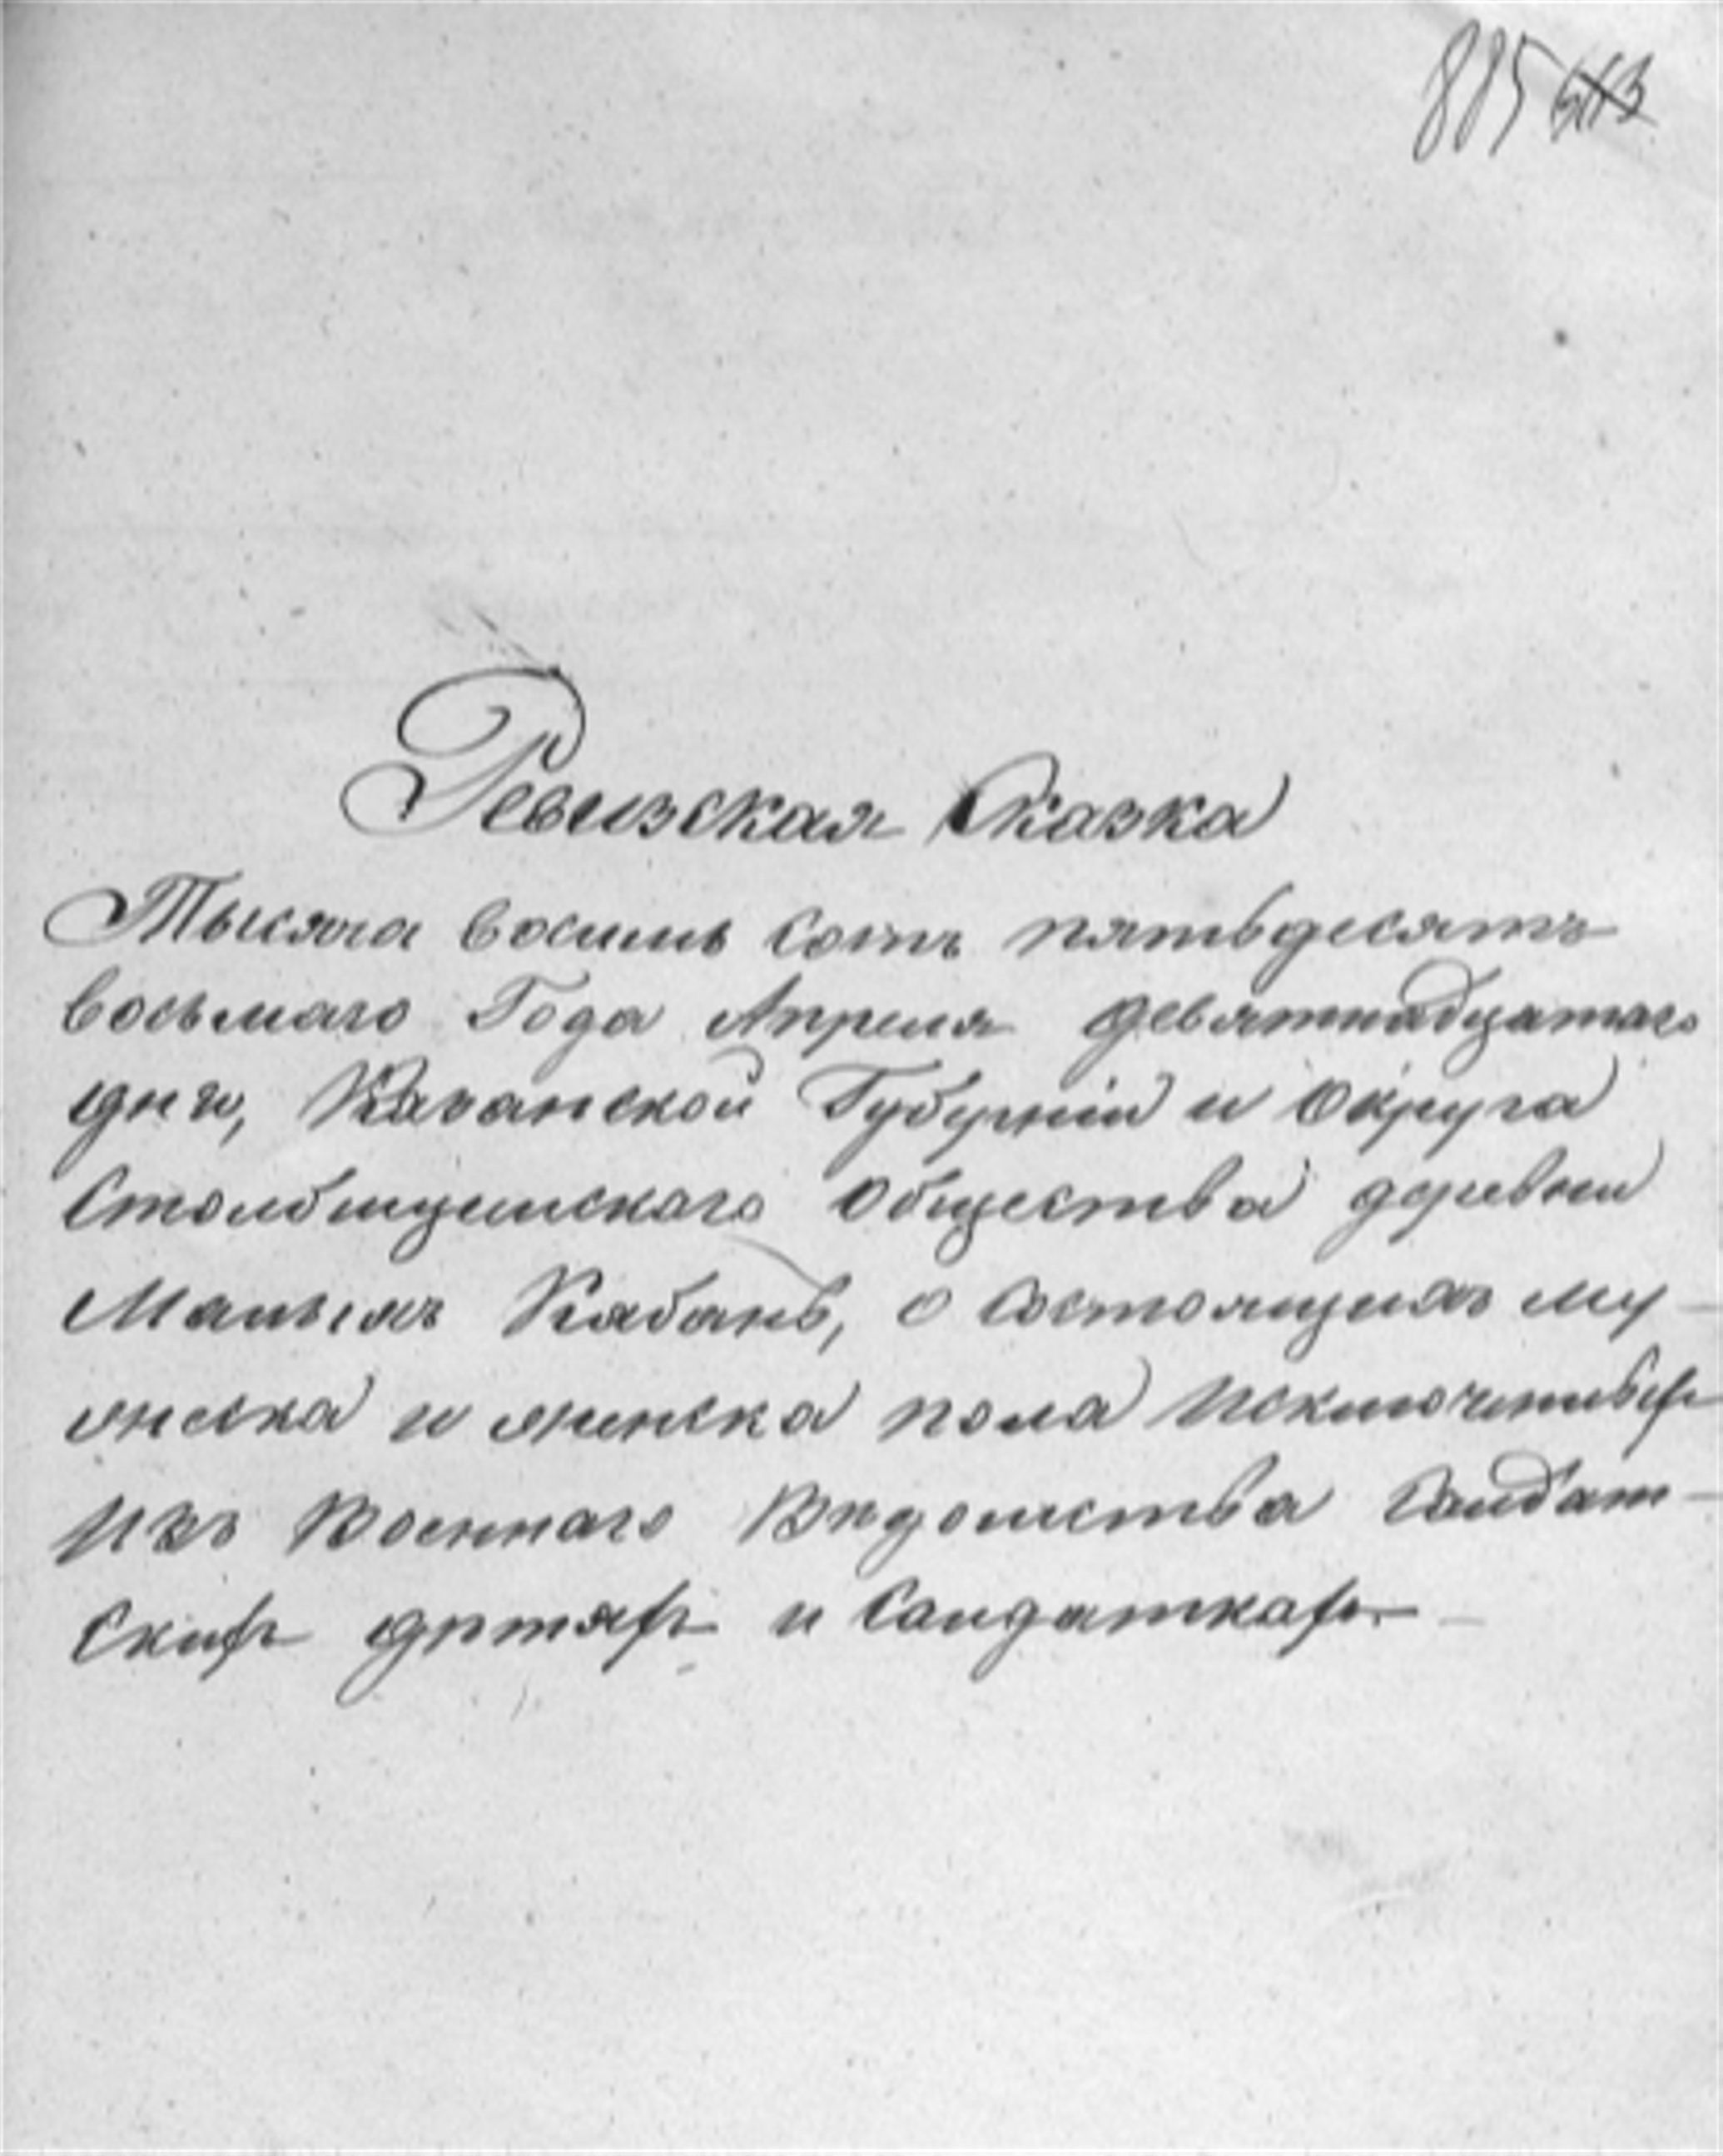 885
Ревизская Сказка
Тысяча восемь сотъ пятьдесятъ
восьмаго Года Апреля девятнадцатаго
дня, Казанской Губерніи и Округа
Столбищенскаго Общества деревни
Малыхъ Кабанъ, о состоящихъ му-
жеска и женска пола Исключенныхъ
Изъ Военнаго Вѣдомства Солдат-
скихъ дѣтяхъ и Солдаткахъ.